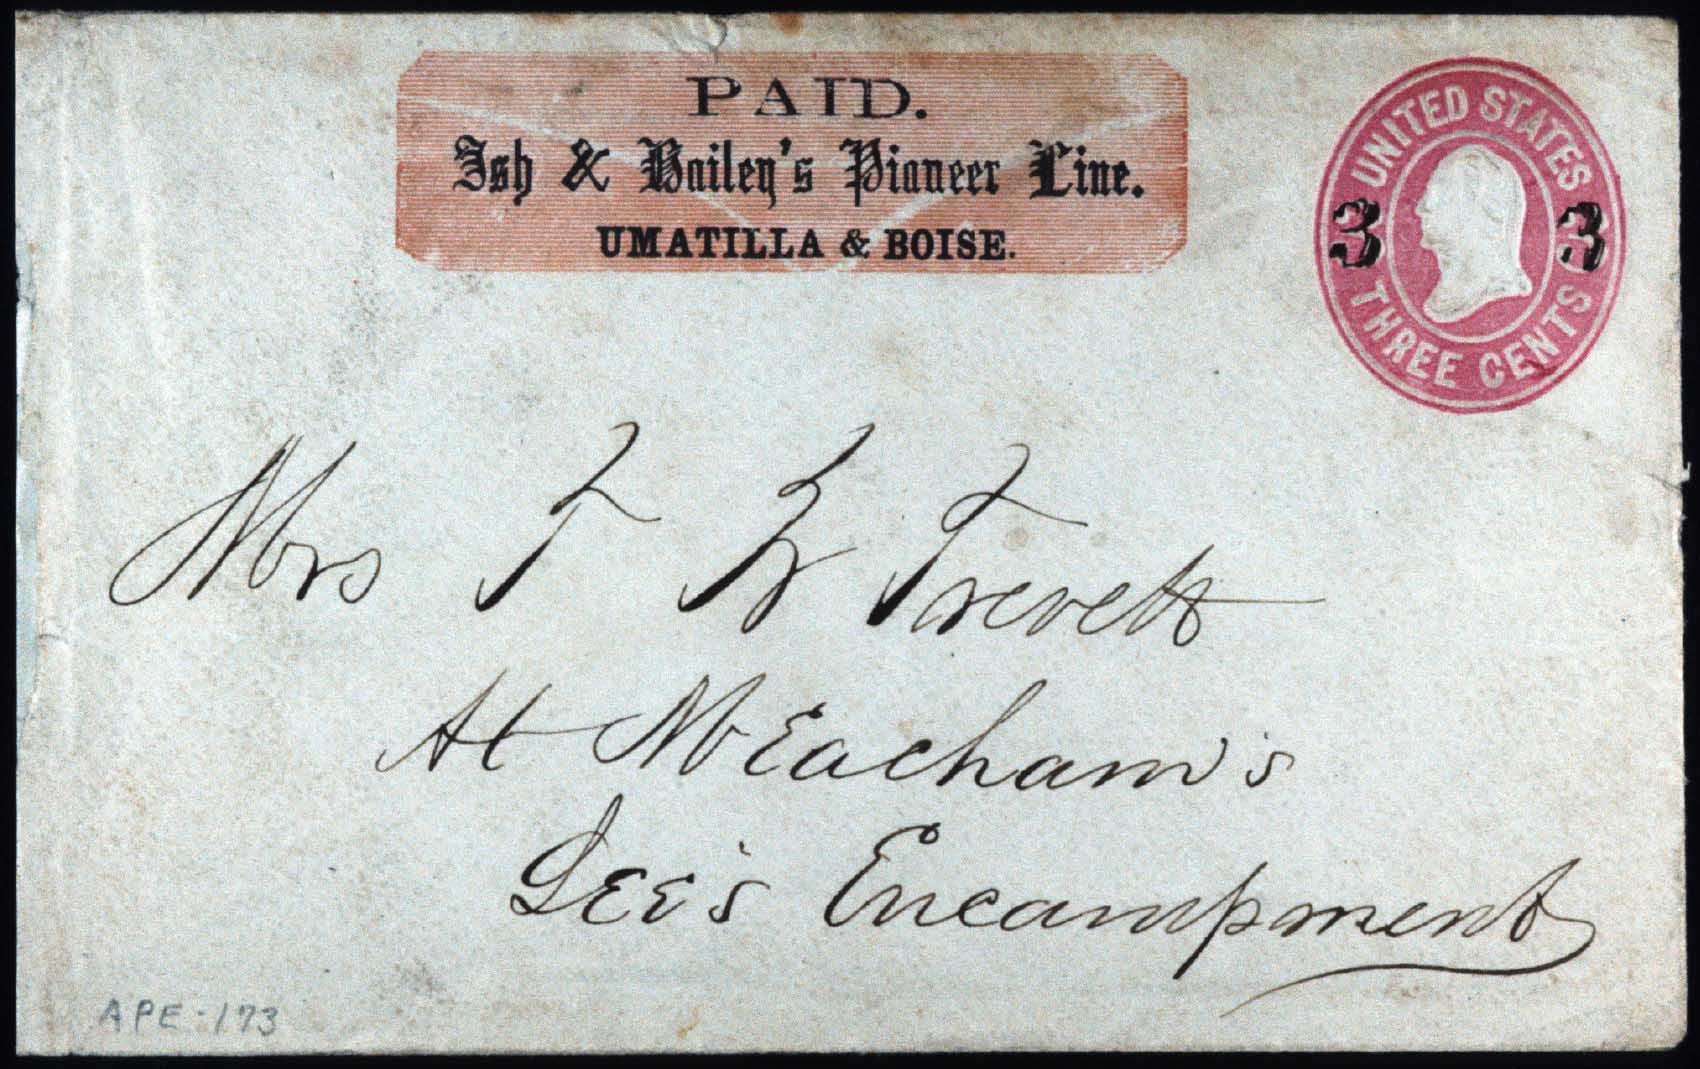 PAID.
Ish & Bailey's Pioneer Line.
UMATILLA & BOISE.
UNITED STATES
3 3
THREE CENTS
Mrs T Trevett
At MEacham's
Lee's Encampment
APE-173